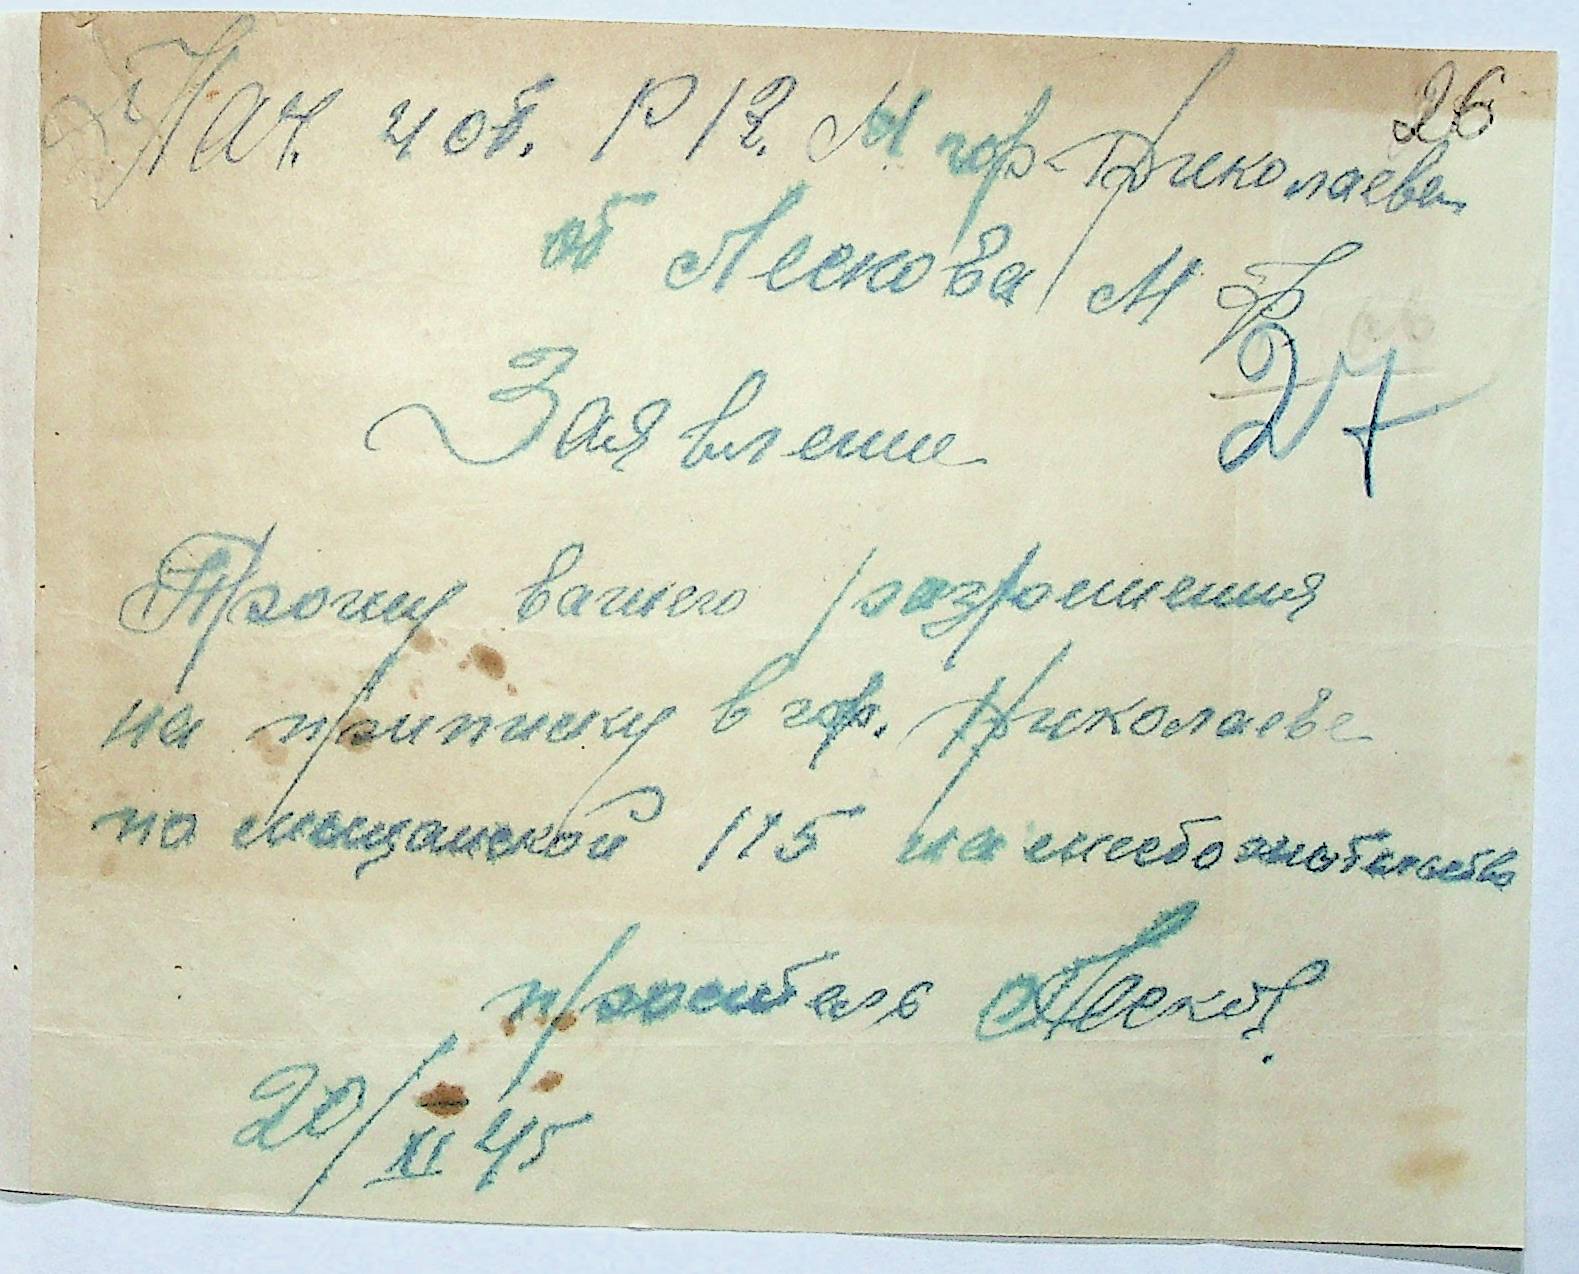 26
Нач. 4 от. Р К М гор. Николаева
от Лескова М Ф
27
Заявление
Прошу вашего розрешения
на приписку в гор. Николаеве
по мещанской 115 на место жительства
проситель Лесков.
20/XII 45